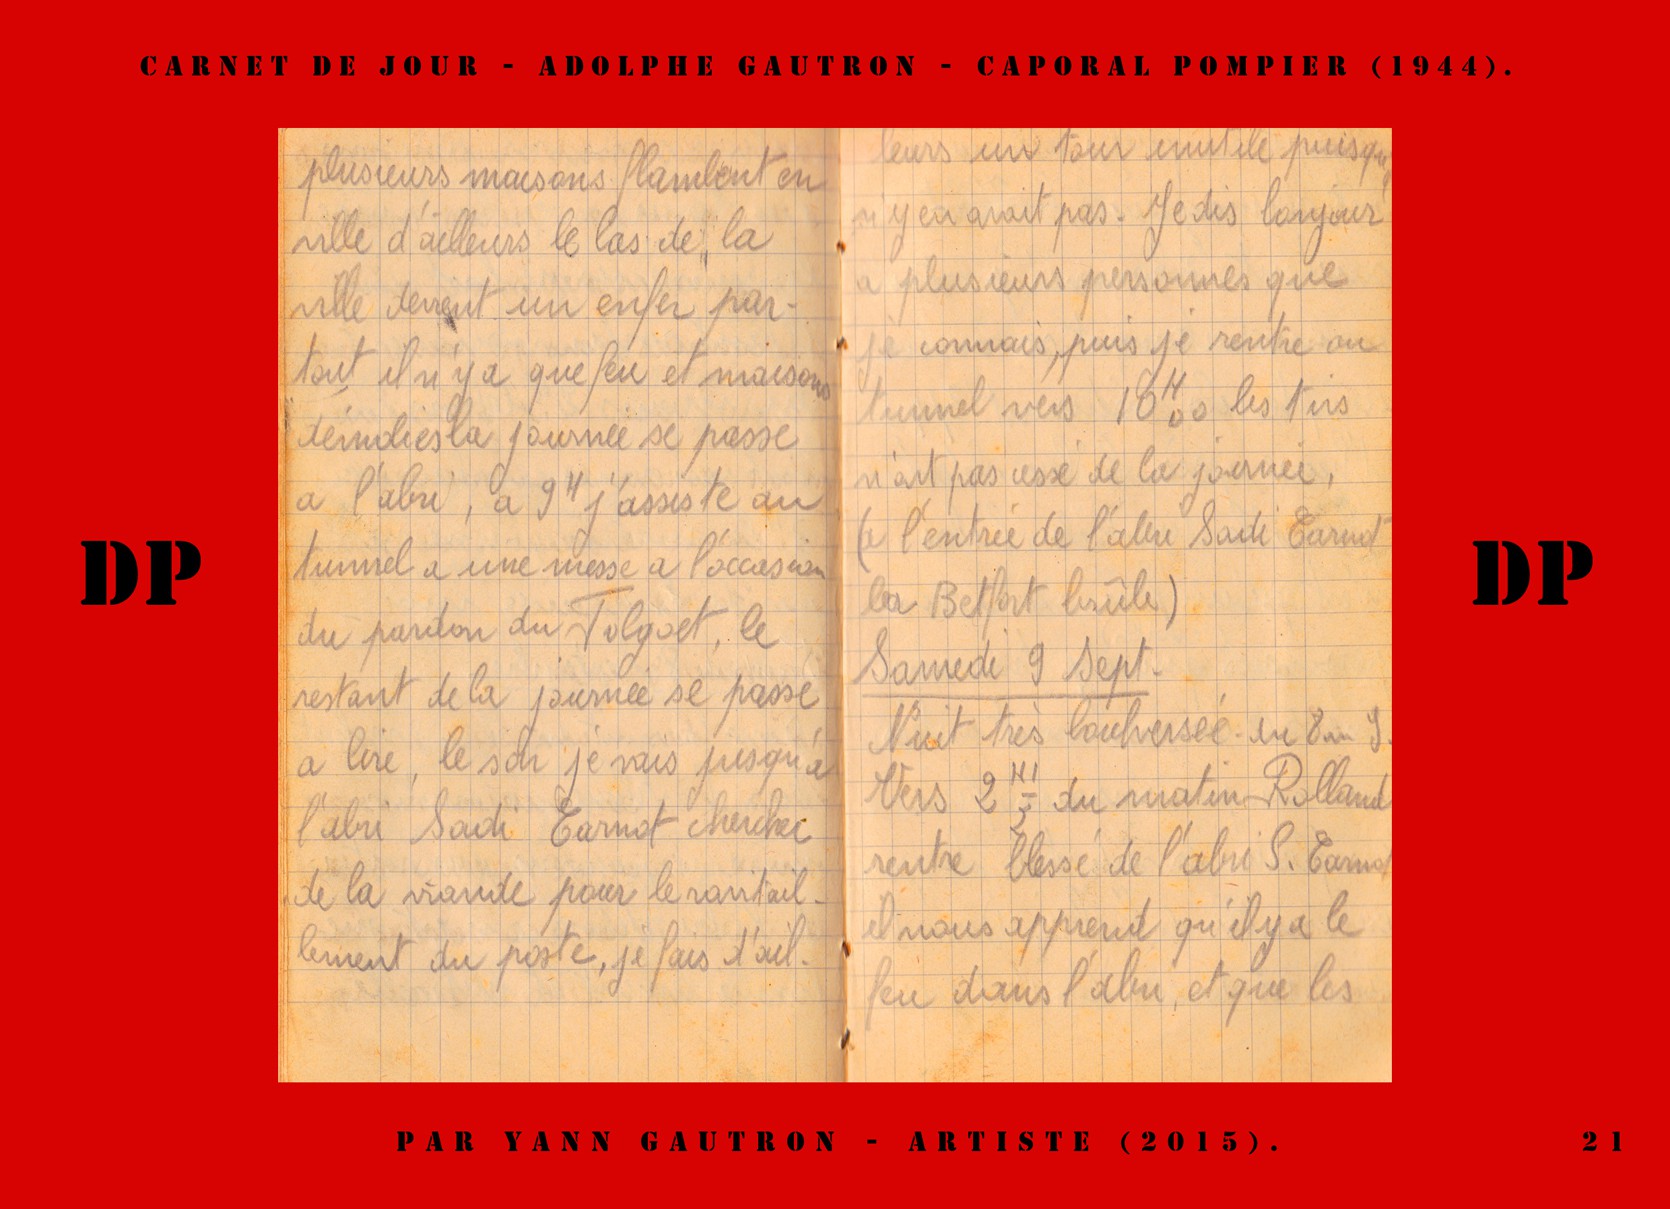 CARNET DE JOUR - ADOLPHE GAUTRON - CAPORAL POMPIER (1944).
plusieurs maisons flambent en
ville d'ailleurs le bas de la
ville devient un enfer par-
tout il n'y a que feu et maisons
la journée se passe
a l'abri, a 9H j'assiste au
tunnel a une messe a l'occasion
du pardon du Folgoet, le
restant de la journée se passe
a lire, le soir je vais jusqu'a
l'abri Sadi Carnot chercher
de la viande pour le ravitail-
lement du poste, je fais d'ail-
leurs un tour inutile puisqu'
n'y en avait pas. Je dis bonjour
a plusieurs personnes que
je connais, puis je rentre au
tunnel vers 18H00 les tirs
n'ont pas cessé de la journée,
(a l'entrée de l'abri Sadi Carnot
la Belfort brûle)
Samedi 9 Sept.
Nuit très bouleversée. du 8 au 9.
Vers 2 du matin Rolland
rentre blessé de l'abri S. Carnot
il nous apprend qu'il y a le
feu dans l'abri, et que les
DP
DP
PAR YANN GAUTRON - ARTISTE (2015).
21